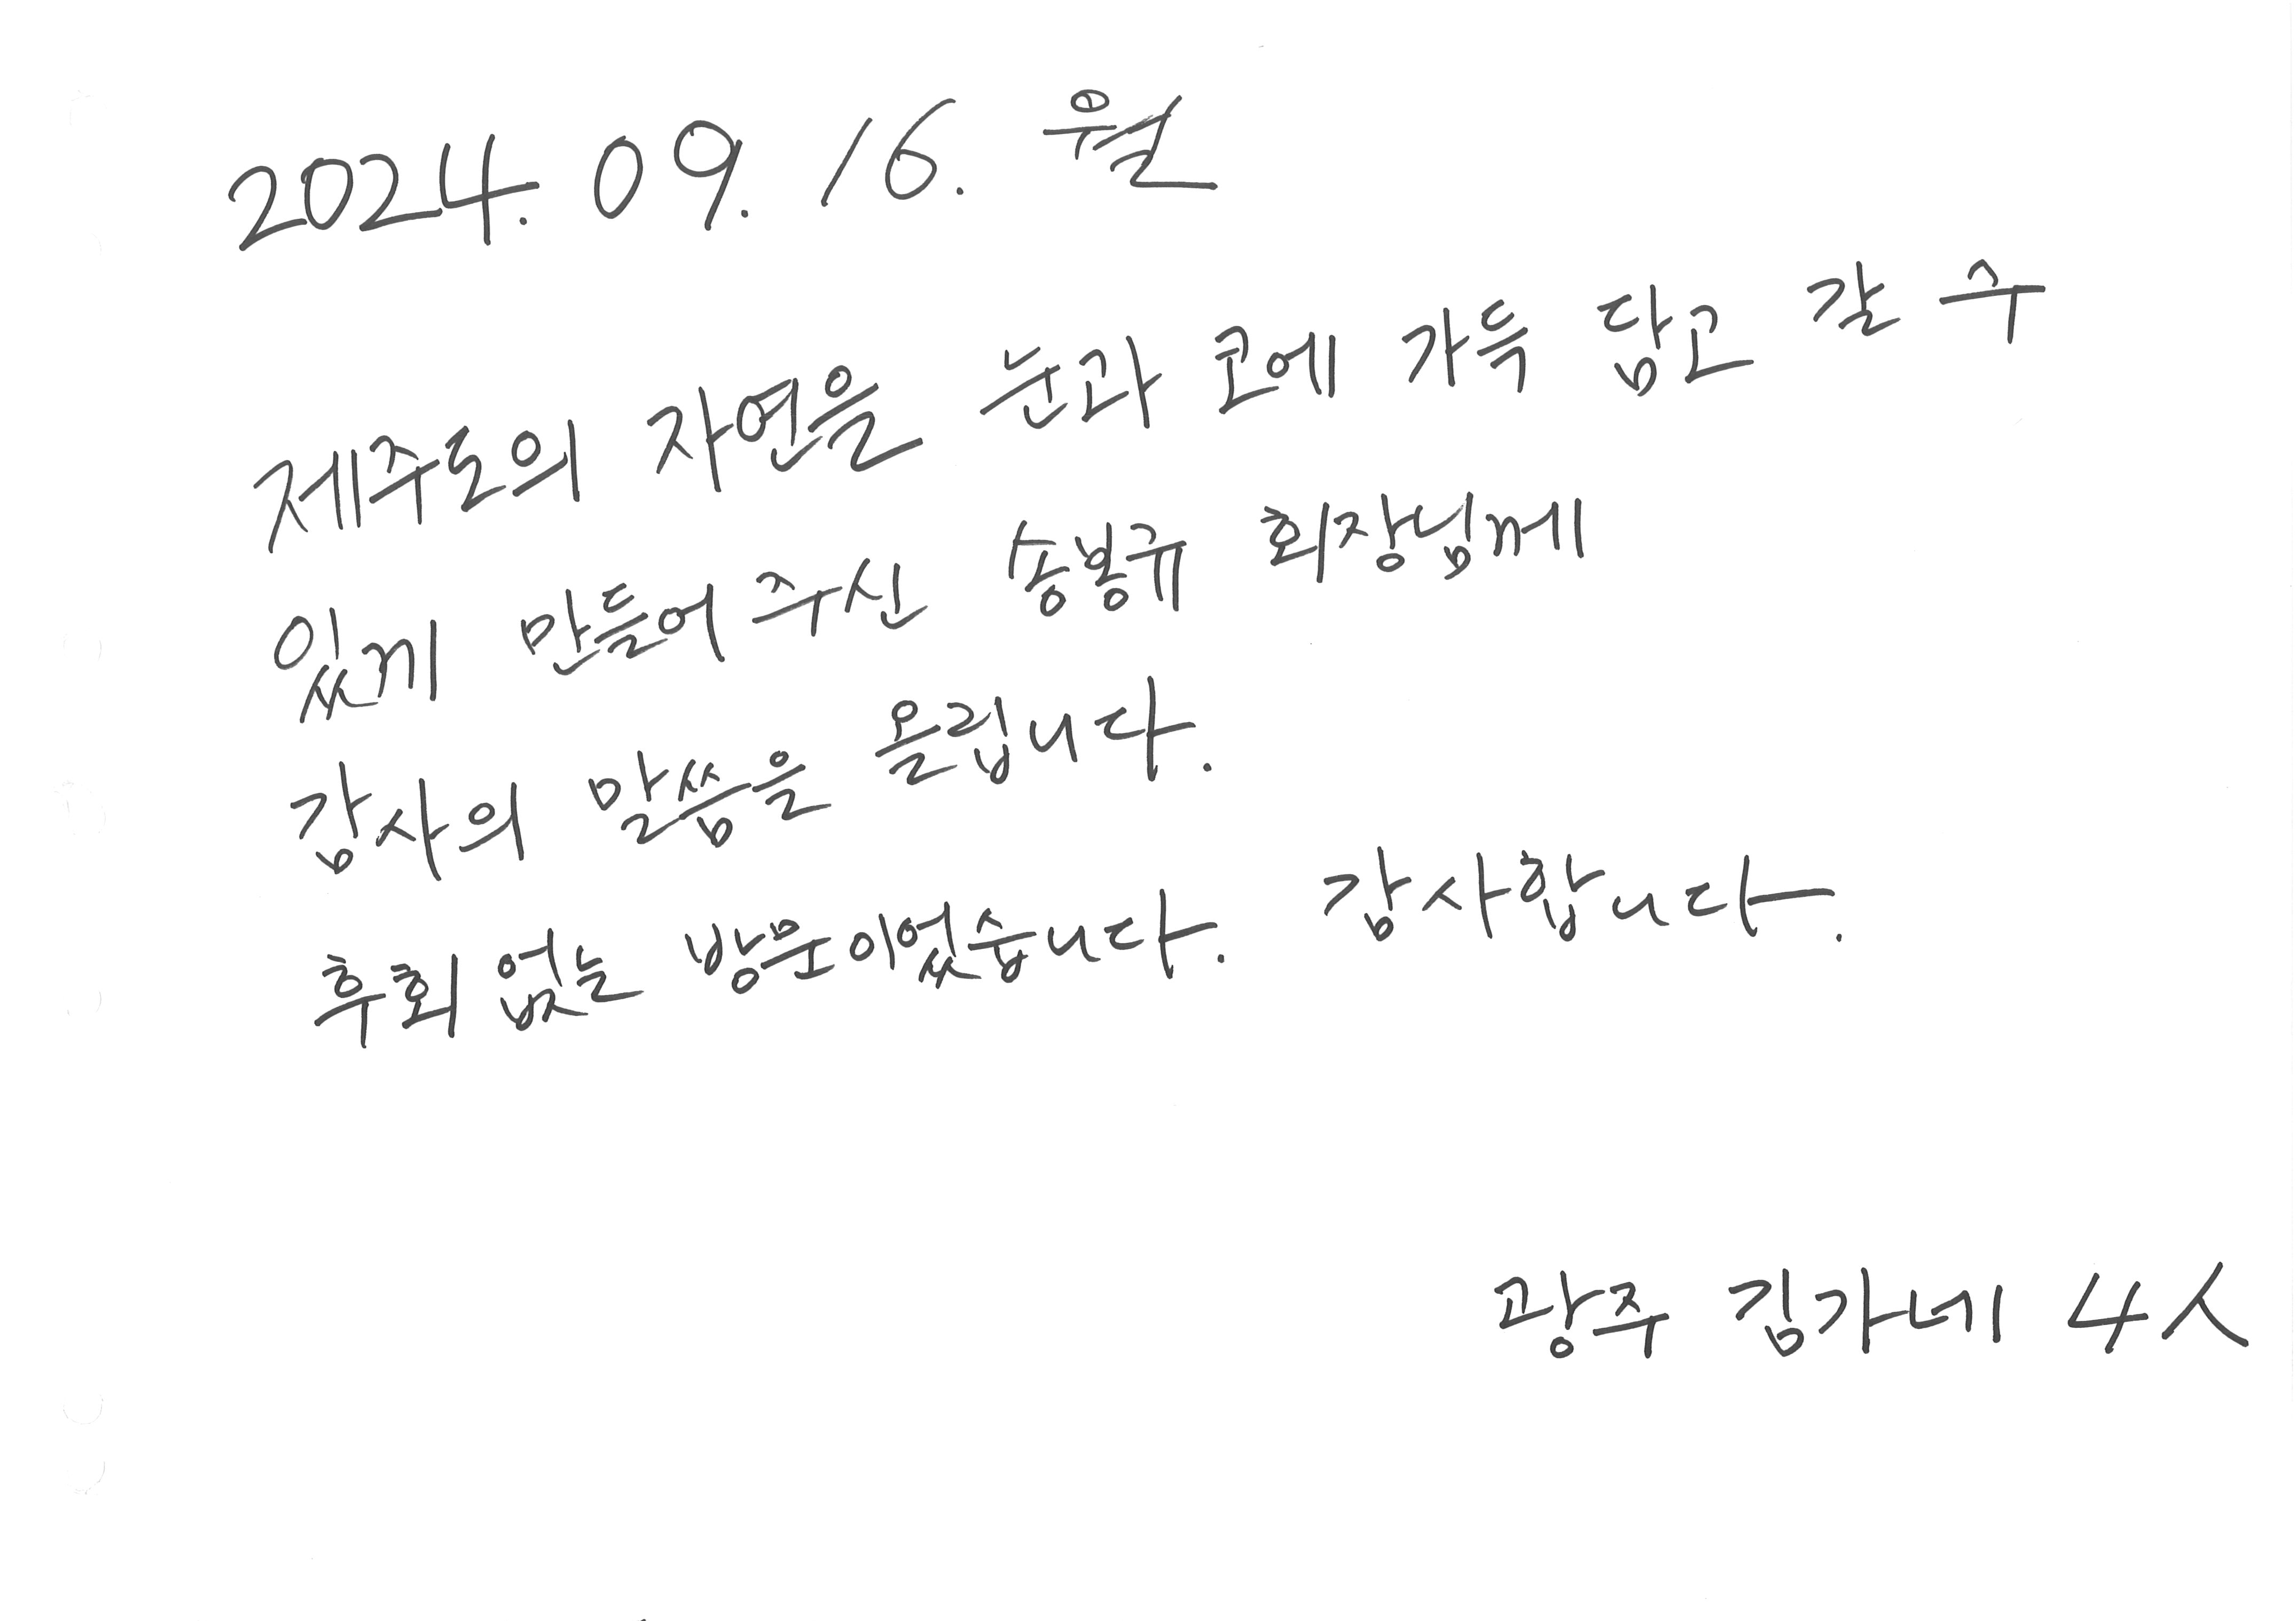 2024. 09. 16. 월
제주도의 자연을 눈과 코에 가득 담고 갈 수
있게 만들어 주신 송봉규 회장님께
감사의 말씀을 올립니다.
후회 없는 방문이었습니다. 감사합니다.
광주 김가네 4人